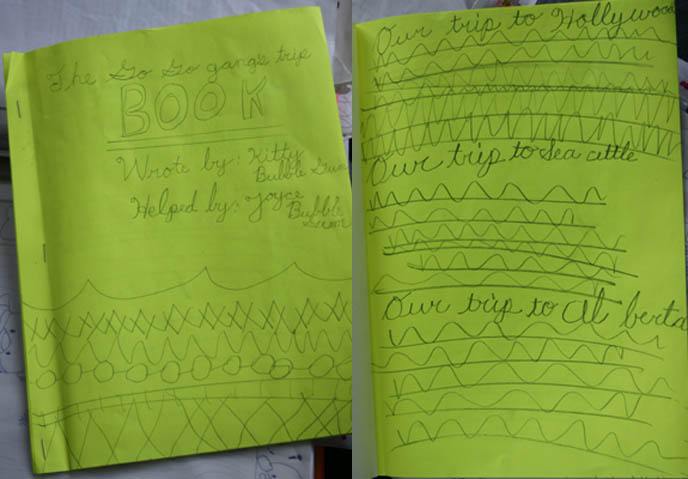 The Go Go gang's trip
BOOK
Wrote by: Kitty
Bubble Gum
Helped by: Joyce
Bubble
Gum
Our trip to Hollywood
Our trip to Sea cittle
Our trip to Al berta